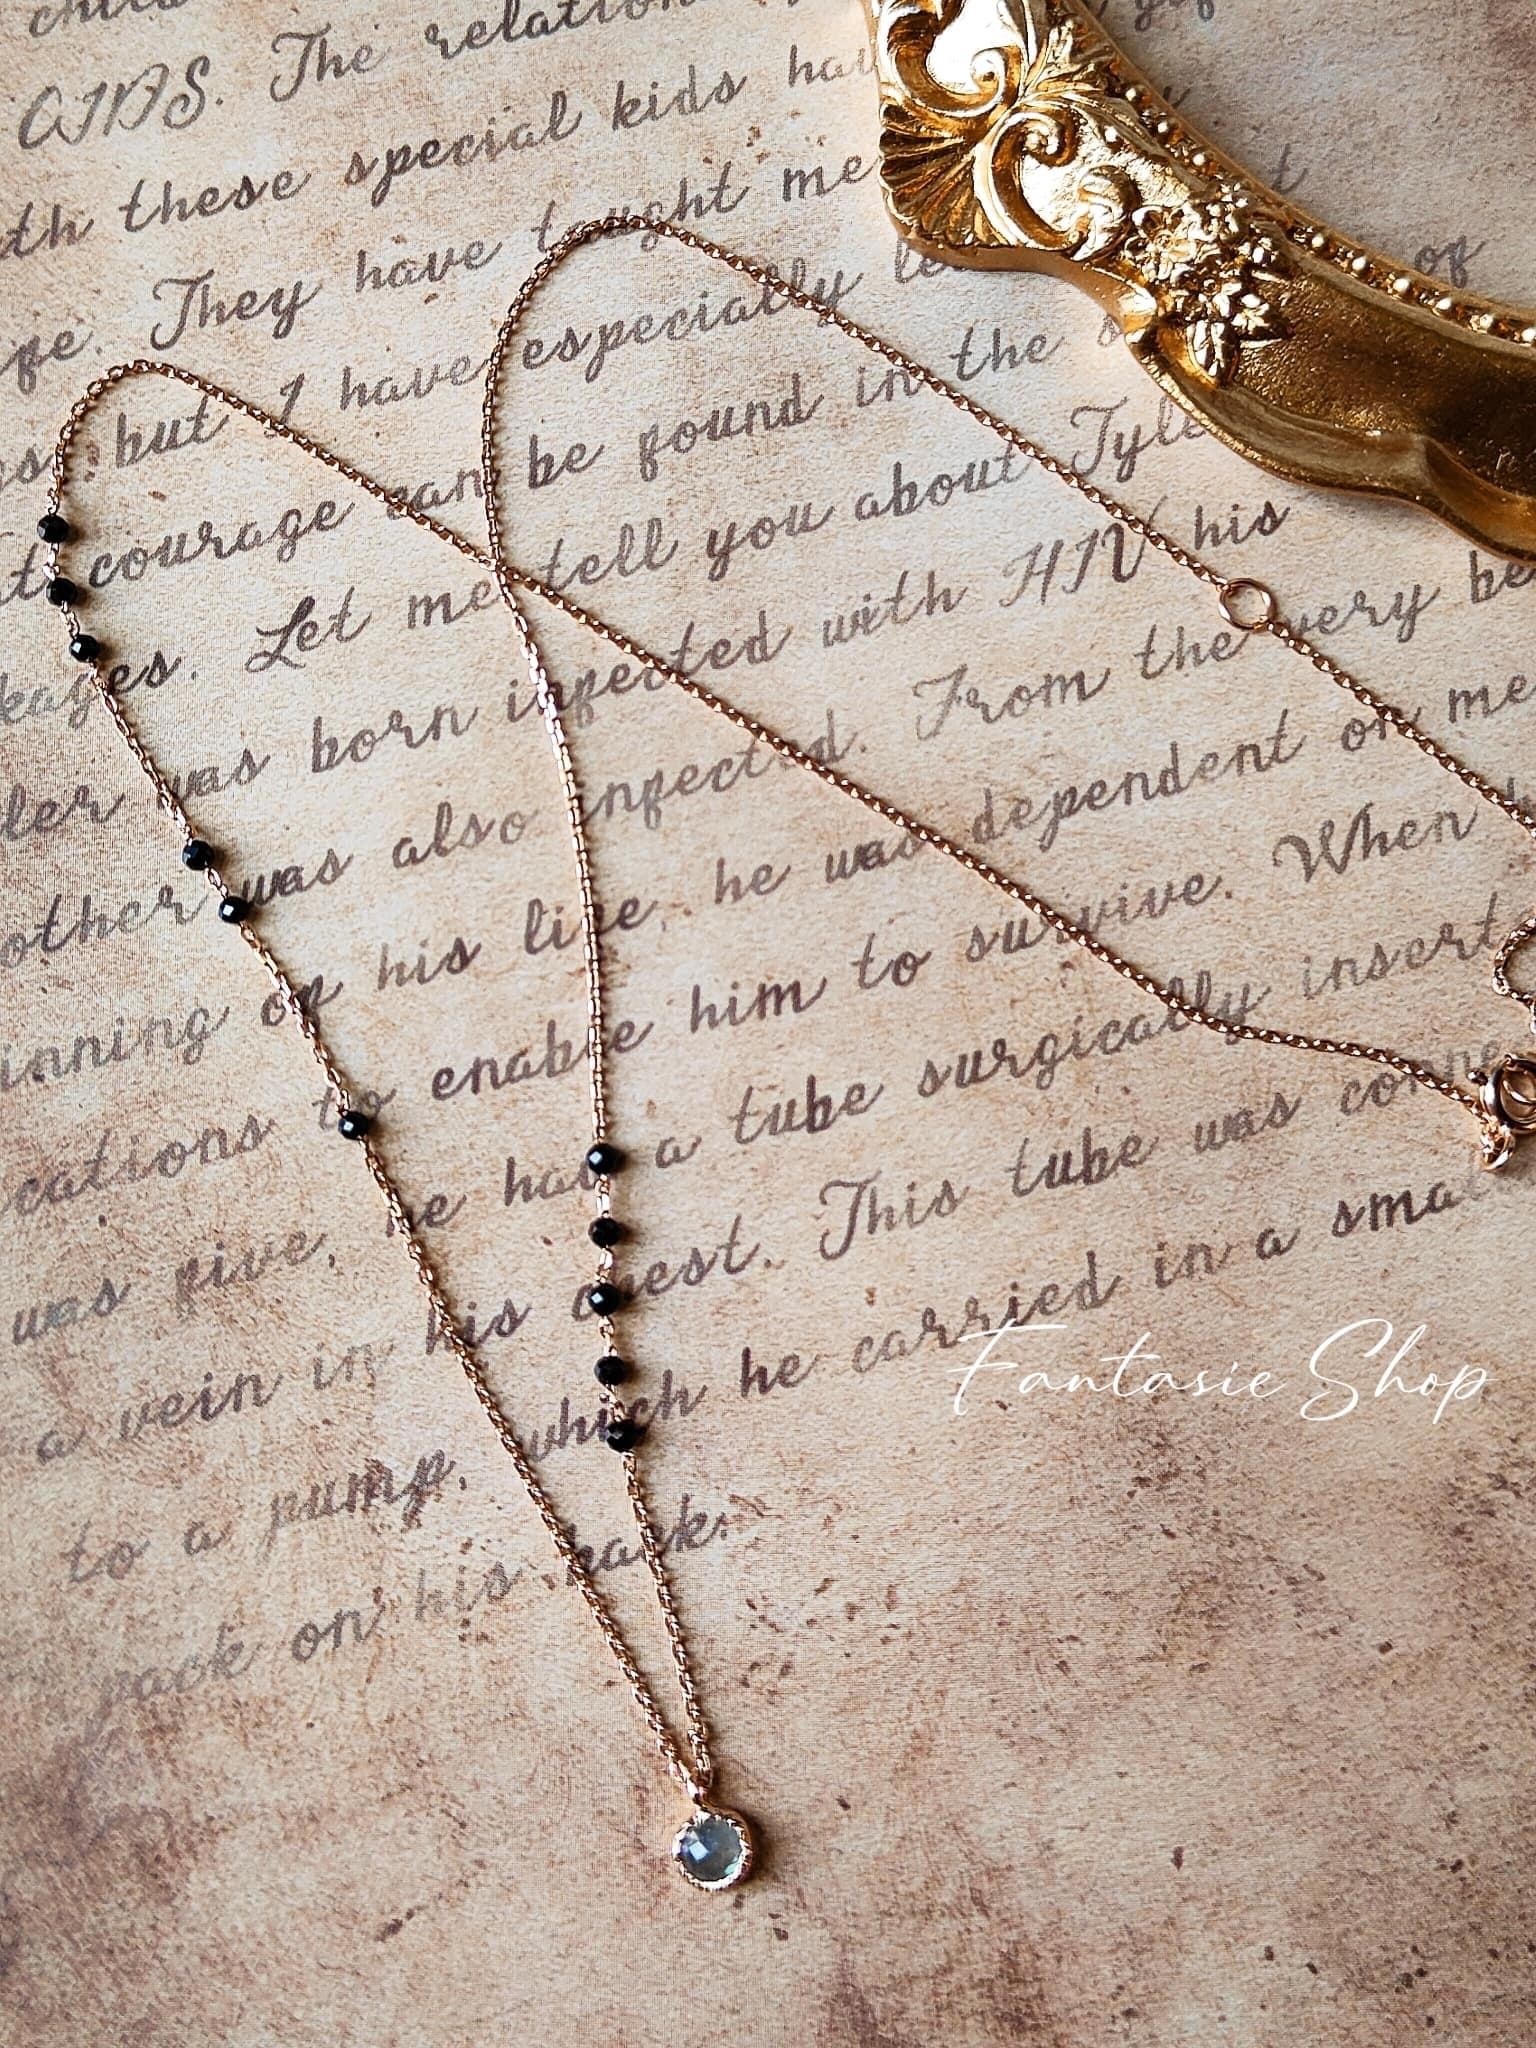 AIDS. The
th these special kids
They have taught me
but I have especially
courage can be found in the
kages. Let me tell you about
was born infected with HIV his
other was also infected. From the very
inning of his life, he was dependent on me
cations to enable him to survive. When
was five, he had a tube surgically insert
a vein in his chest. This tube was conne
to a pump, which he carried in a small
pack on his back.
Fantasie Shop